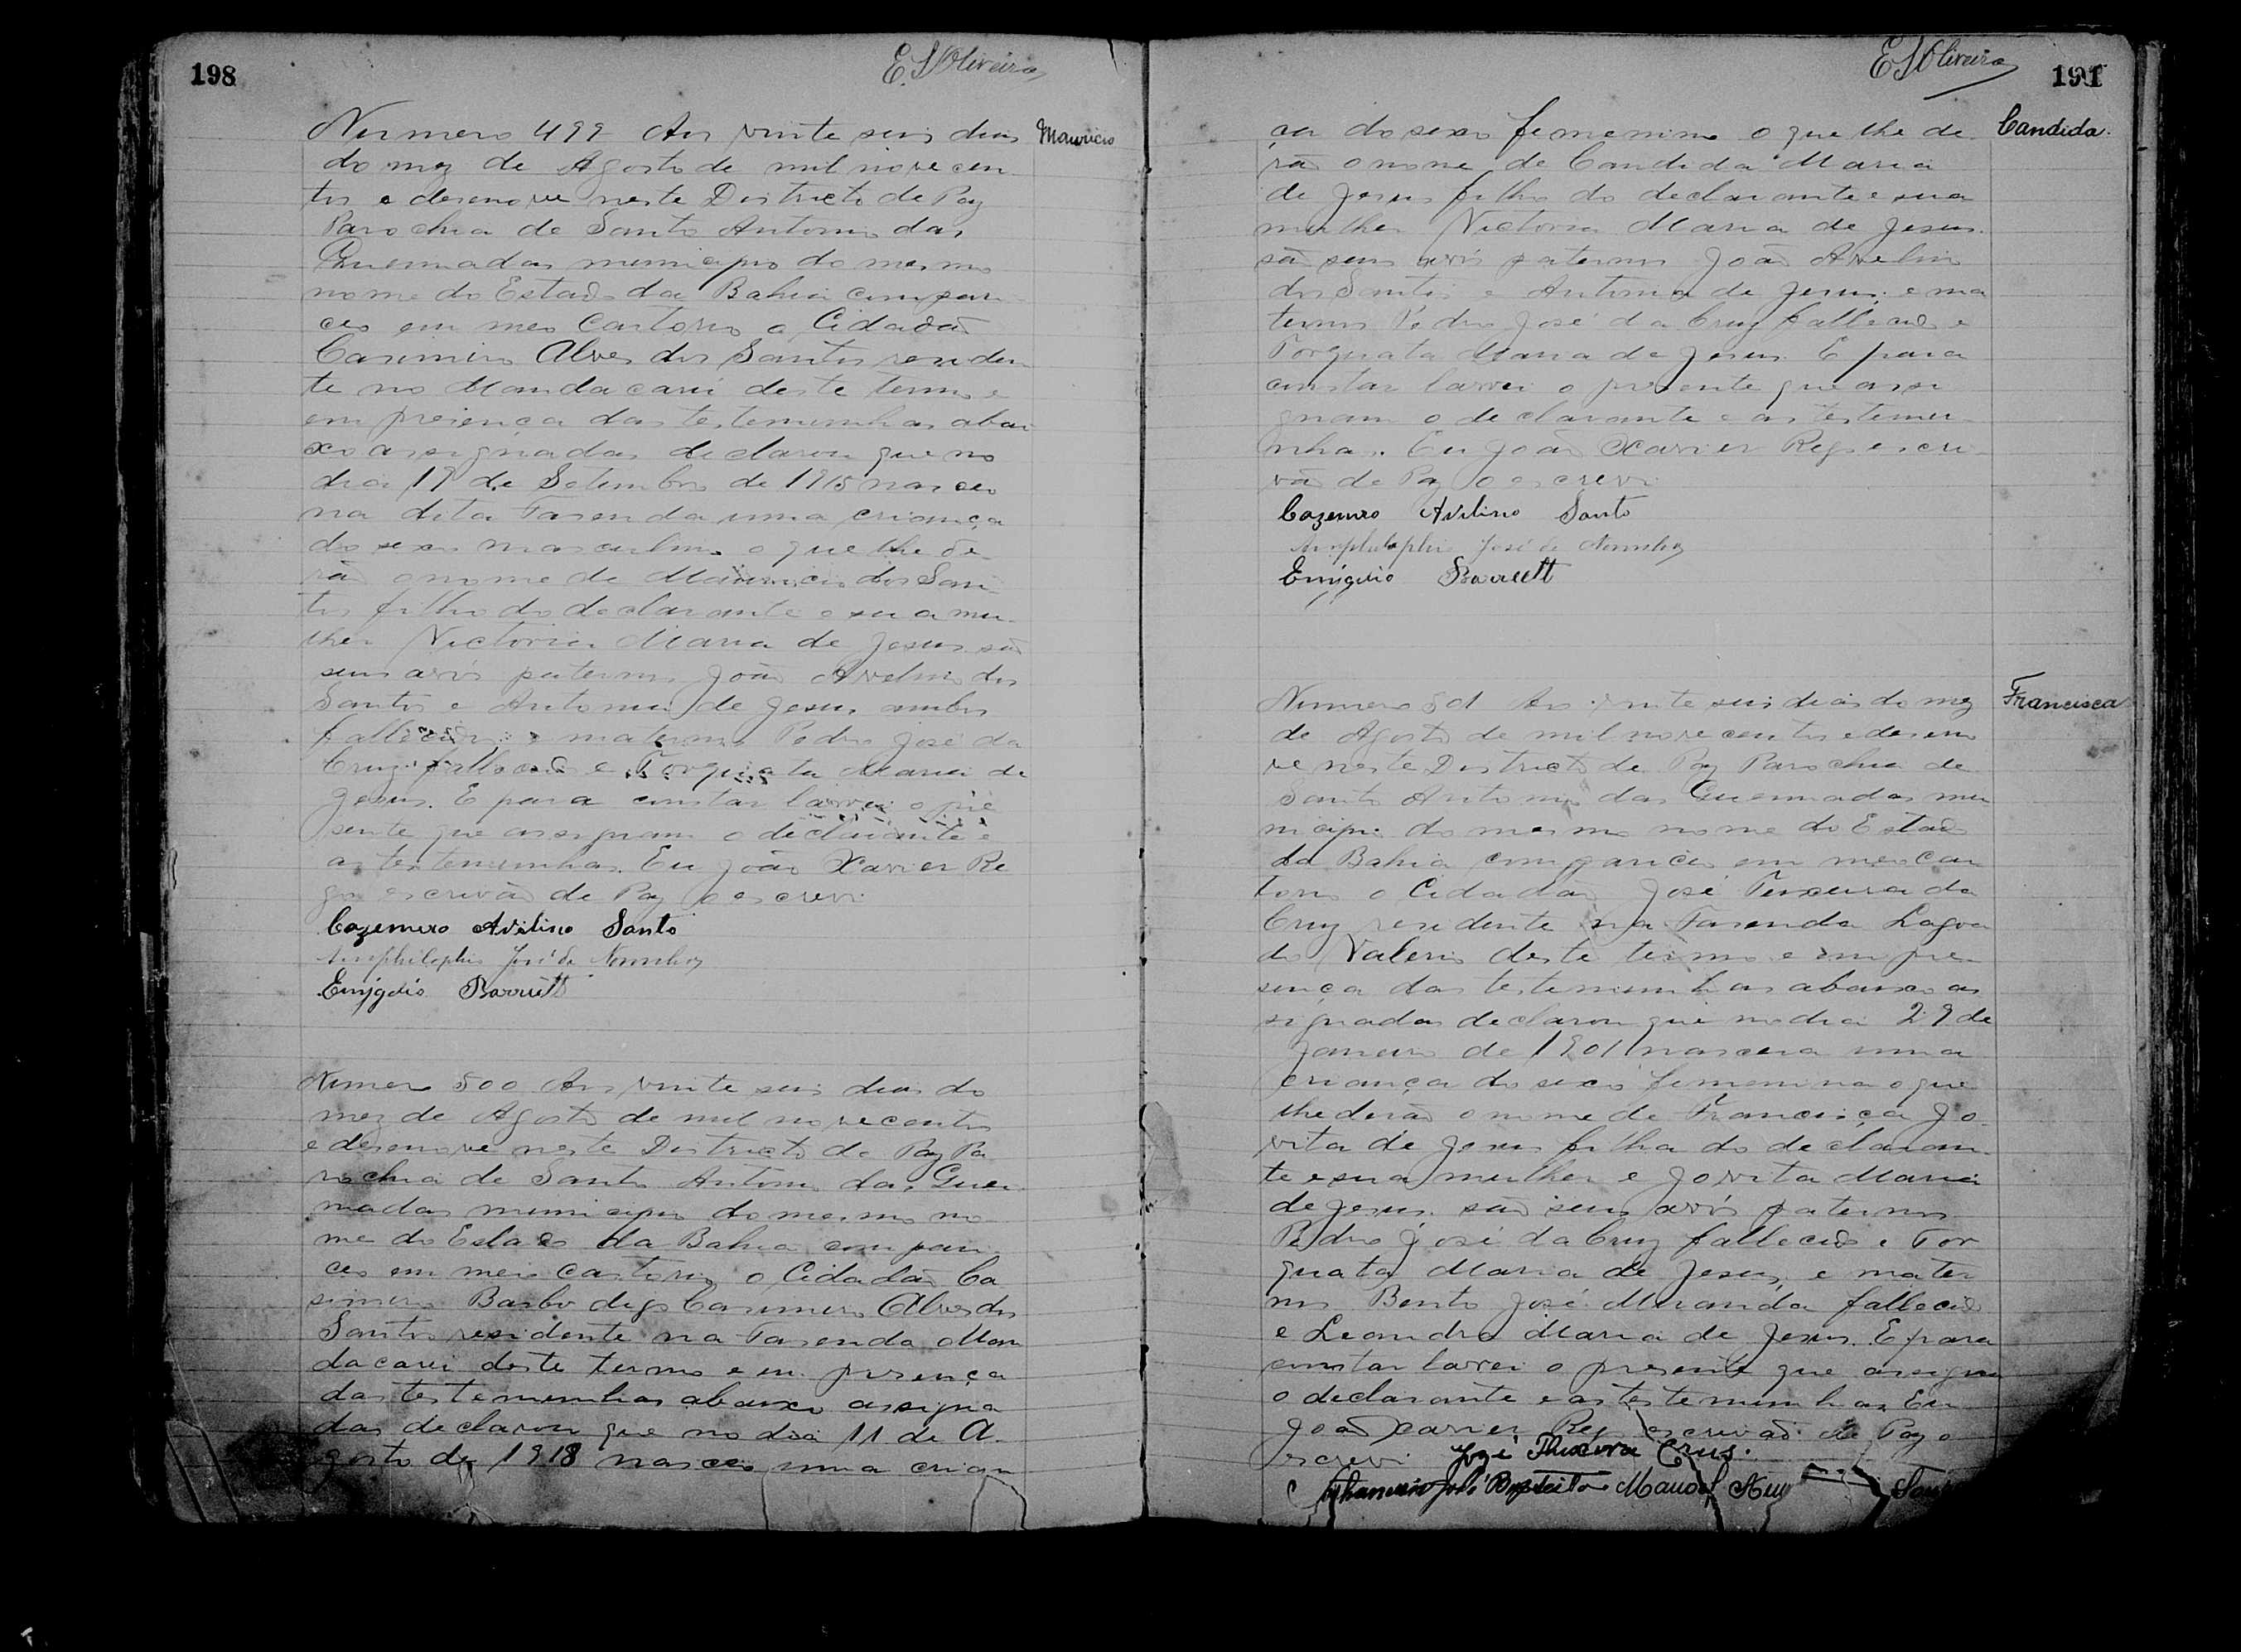 198
E. S. Oliveira
Numero 499 Aos vinte seis dias
Mauricio
do mez de Agosto de mil novecen
tos e desenove neste Districto de Paz
Parochia de Santo Antonio das
Queimadas municipio do mesmo
nome do Estado da Bahia compare
ceo em meo Cartorio o Cidadão
Casimiro Alves dos Santos residen
te no Mandacarú deste termo e
em presença das testemunhas abai
xo assignadas declarou que no
dia 19 de Setembro de 1915 nasceo
na dita Fasenda uma criança
do sexo masculino o que lhe de
rão o nome de Mauricio dos San
tos filho do declarante e sua mu
lher Victoria Maria de Jesus são
seus avós paternos João Avelino dos
Santos e Antonia de Jesus ambos
fallecidos e maternos Pedro José da
Cruz fallecido e Torquata Maria de
Jesus. E para constar lavrei o pre
sente que assignam o declarante e
as testemunhas. Eu João Xavier Re
go escrivão de Paz o escrevi
Cazemiro Avilino Santo
José de
Emygdio Barrett
Numero 500 Aos vinte seis dias do
mez de Agosto de mil novecentos
e desenove neste Districto de Paz Pa
rochia de Santo Antonio das Quei
madas municipio do mesmo no
me do Estado da Bahia compare
ceo em meo cartorio o Cidadão Ca
simiro Barbo digo Casimiro Alves dos
Santos residente na Fasenda Man
dacarú deste termo e em presença
das testemunhas abaixo assigna
das declarou que no dia 11 de A
gosto de 1918 nasceo uma crian
E S Oliveira
191
ça do sexo femenino o que lhe de
Candida.
rão o nome de Candida Maria
de Jesus filha do declarante e sua
mulher Victoria Maria de Jesus.
são seus avós paternos João Avelino
dos Santos e Antonia de Jesus, e ma
ternos Pedro José da Cruz fallecido e
Torquata Maria de Jesus. E para
constar lavrei o presente que assi
gnam o declarante e as testemu
nhas. Eu João Xavier Rego escri
vão de Paz o escrevi
Cazemiro Avilino Santo
José de
Emygdio Barrett
Numero 501 Aos vinte seis dias do mez
Francisca
de Agosto de mil novecentos e deseno
ve neste Districto de Paz Parochia de
Santo Antonio das Queimadas mu
nicipio do mesmo nome do Estado
da Bahia compareceo em meo car
torio o Cidadão José Teixeira da
Cruz residente na Fasenda Lagoa
do Valerio deste termo e em pre
sença das testemunhas abaixo as
signadas declarou que no dia 29 de
Janeiro de 1901 nascera uma
criança do sexo femenina o que
lhe derão o nome de Francisca Jo
vita de Jesus filha do declaran
te e sua mulher e Jovita Maria
de Jesus. são seus avós paternos
Pedro José da Cruz fallecido e Tor
quata Maria de Jesus, e mater
nos Bento José Miranda fallecido
e Leandra Maria de Jesus. E para
constar lavrei o presente que assigna
o declarante e as testemunhas Eu
João Xavier Rego escrivão de Paz o
escrevi José Cruz.
José Manoel